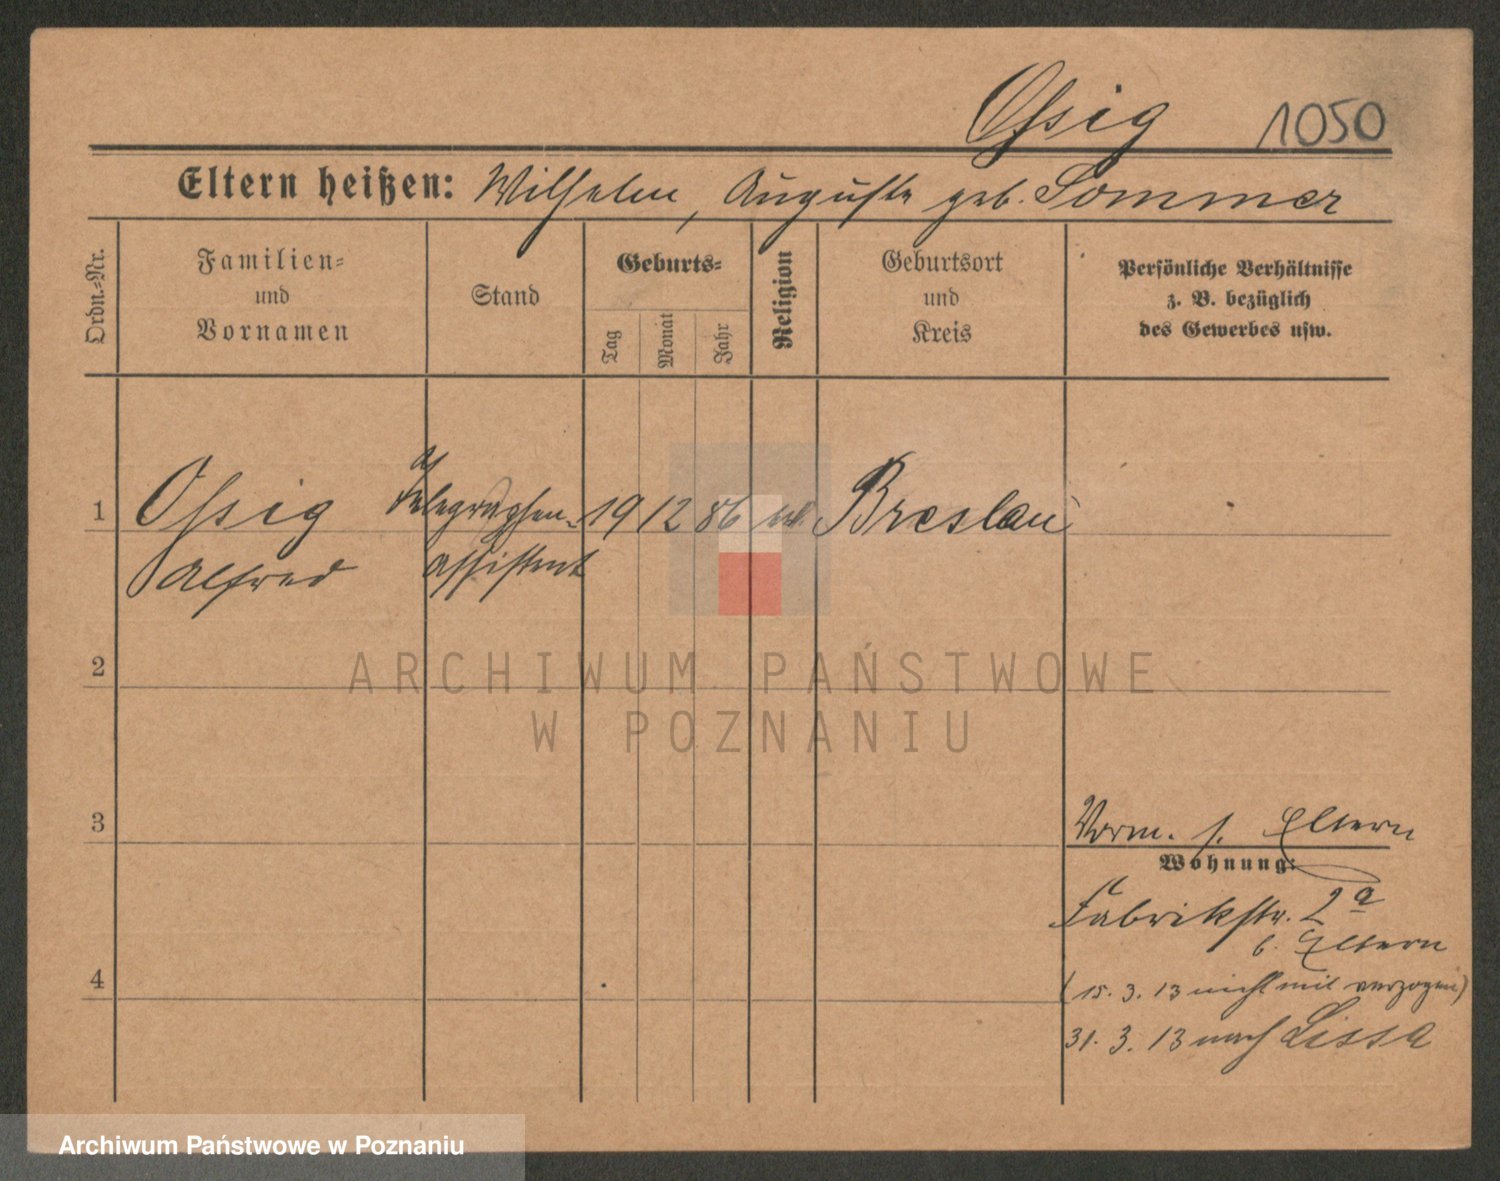 Ossig 1050
Eltern heißen: Wilhelm, Auguste geb. Sommer
Ordn.-Nr.
Familien-
und
Vornamen
Stand
Geburts-
Tag
Monat
Jahr
Religion
Geburtsort
und
Kreis
Persönliche Verhältnisse
z. B. bezüglich
des Gewerbes usw.
1 Ossig Telegraphen- 19 12 86 Breslau
Alfred assistent
2
ARCHIWUM PAŃSTWOWE
W POZNANIU
3
Vorm. s. Eltern
Wohnung:
Fabrikstr. 2a
b. Eltern
4
(15. 3. 13 nicht mit verzogen)
31. 3. 13 nach Lissa
Archiwum Państwowe w Poznaniu